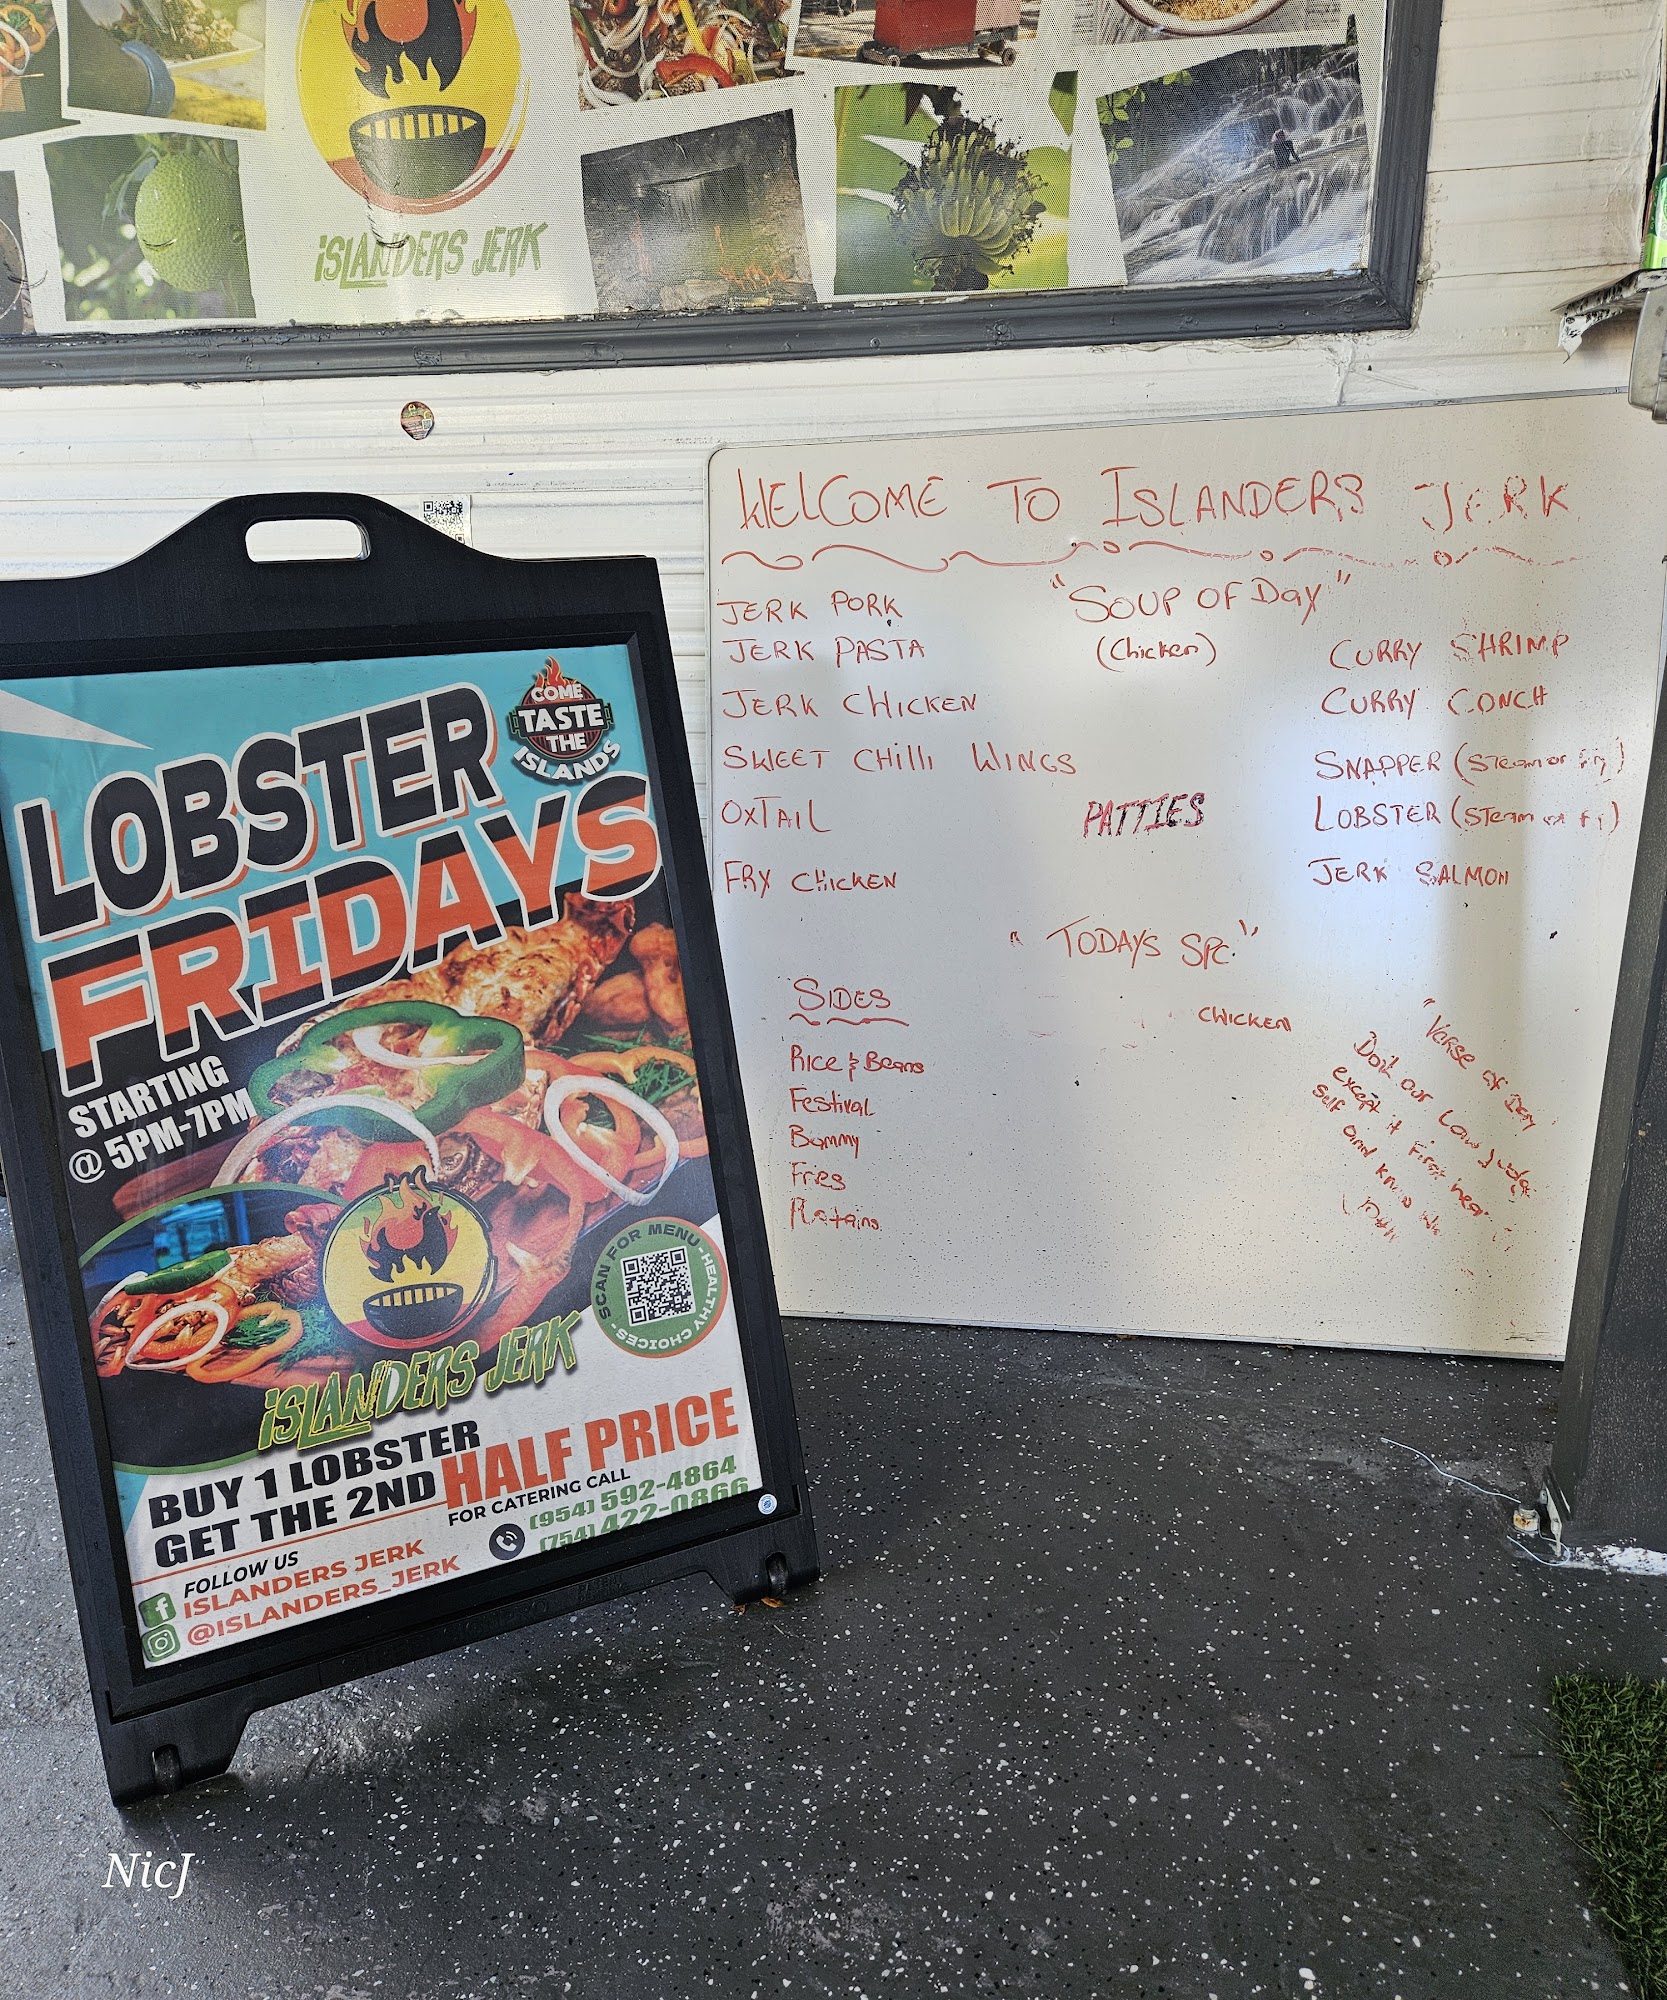 ISLANDERS JERK
LOBSTER
FRIDAYS
COME
TASTE
THE
ISLANDS
STARTING
@ 5PM-7PM
SCAN FOR MENU - HEALTHY CHOICES -
ISLANDERS JERK
BUY 1 LOBSTER
GET THE 2ND HALF PRICE
FOR CATERING CALL
(954) 592-4864
(754) 422-0866
FOLLOW US
ISLANDERS JERK
@ISLANDERS_JERK
WELCOME TO ISLANDERS JERK
JERK PORK
JERK PASTA
JERK CHICKEN
SWEET CHILLI WINGS
OXTAIL
FRY CHICKEN
"SOUP OF DAY"
(Chicken)
PATTIES
CURRY SHRIMP
CURRY CONCH
SNAPPER (STeam or fry)
LOBSTER (STeam or
JERK SALMON
"TODAYS SPC."
CHICKEN
SIDES
Rice & Beans
Festival
Bammy
Fries
Plantains
"Verse of Day
Doit our Law Judge
except it First hear
self and know
NicJ